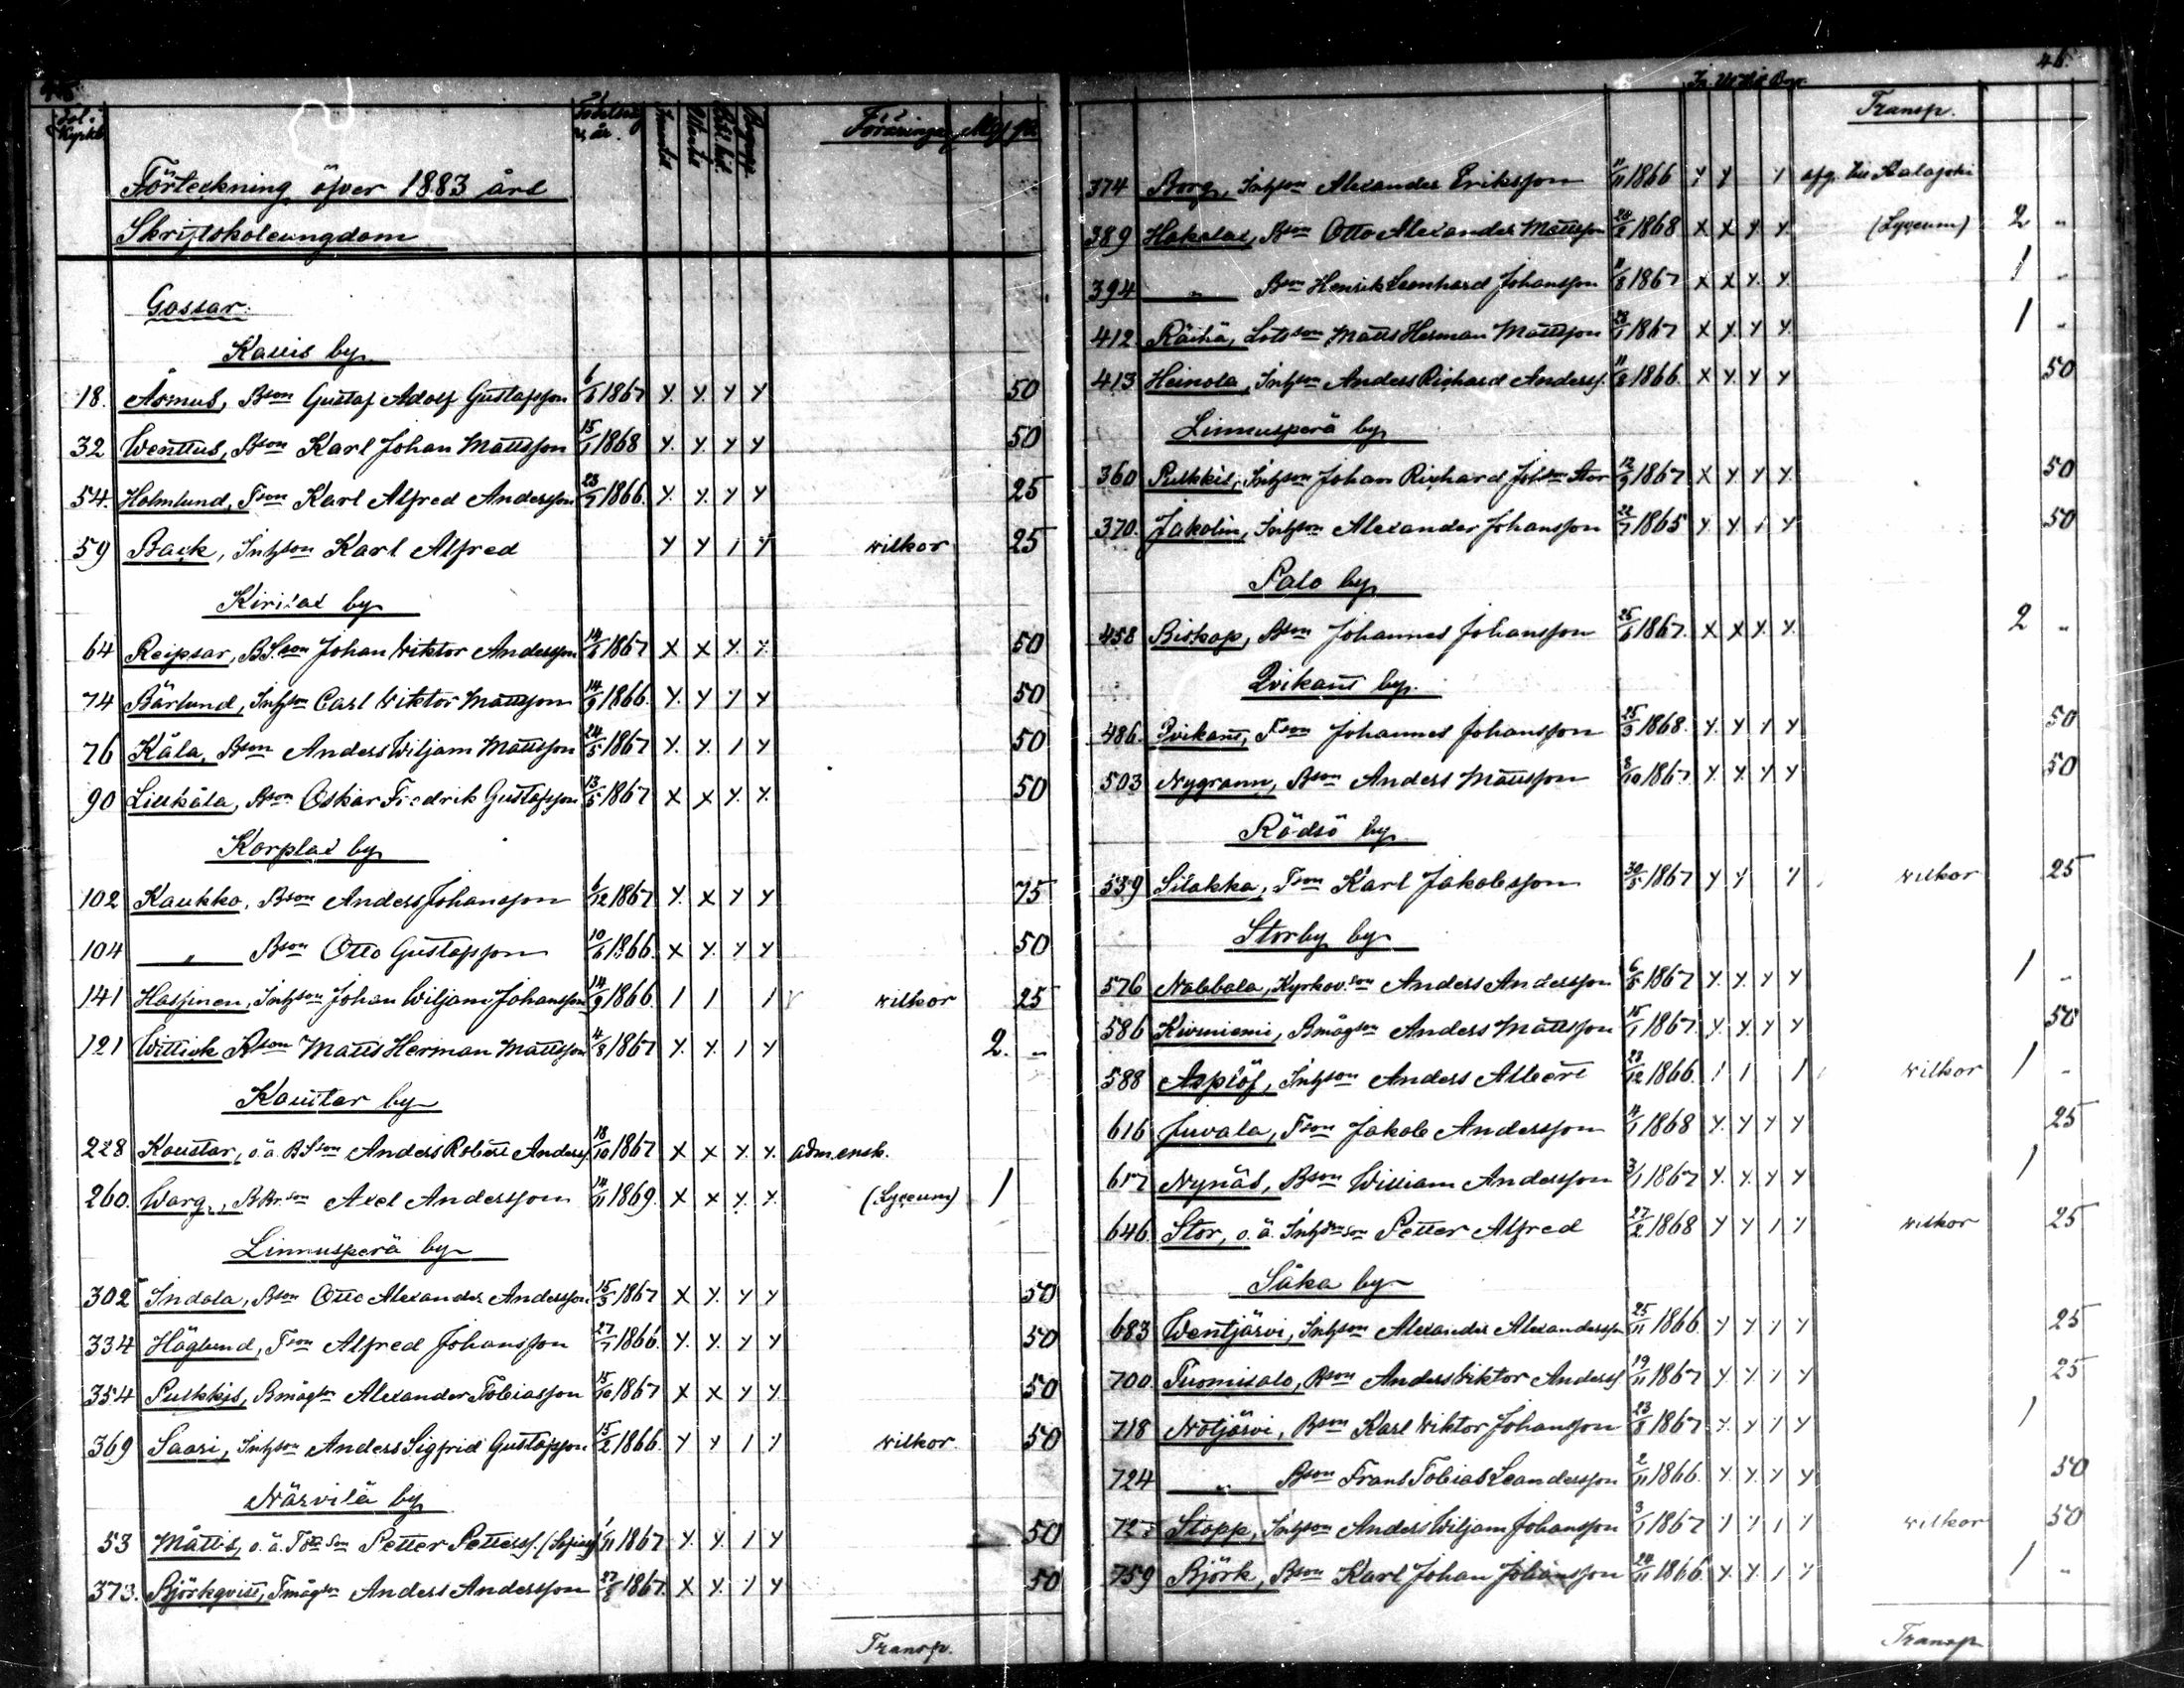 45.
Fol. i Kyrkb. Födelsedag & år. Innanläs. Utanläs. Begrepp. Föräringe Mk p.
Förteckning öfver 1883 års
Skriftskoleungdom
Gossar.
Kallis by
18. Åsmus, Bson Gustaf Adolf Gustafsson 6/6 1867 y. y. y y 50
32 Wenttus, Bson Karl Johan Mattsson 15/1 1868 y. y. y y 50
54. Holmlund, Tson Karl Alfred Andersson 23/7 1866. y. y. y y 25
59 Back, Inhson Karl Alfred y y / y wilkor 25
Kirilax by
64 Reipsar, BSson Johan Wiktor Andersson 14/6 1867 x x y. y. 50
74 Bärlund, Inhson Carl Wiktor Mattsson 14/9 1866. y. y y y 50
76 Kåla, Bson Anders Wiljam Mattsson 24/5 1867 y. y. / y 50
90 Lillkåla, Bson Oskar Fredrik Gustafsson 13/5 1867 x x y. y. 50
Korplax by
102 Kaukko, Bson Anders Johansson 6/12 1867 y. x y y 75
104 " Bson Otto Gustafsson 10/6 1866. x y. y y 50
141 Hassinen, Inhson Johan Wiljam Johansson 14/9 1866. / / / wilkor 25
121 Wittick Bson Matts Herman Mattsson 4/8 1867 y. y. / y 2. "
Koustar by
228 Koustar, o.ä. BSson Anders Robert Anderss. 18/10 1867 x x y. y. adm. ensk.
260. Warg, Axel Andersson 14/11 1869. x x y. y. (Lyceum) 1
Linnusperä by
302 Indola, Bson Otto Alexander Andersson 15/3 1867 x y. y y 50
334 Höglund, Tson Alfred Johansson 27/7 1866. y. y. y y 50
354 Pulkkis, Bmågson Alexander Tobiasson 15/10 1867 x x y y. 50
369 Saari, Inhson Anders Sigfrid Gustafsson 15/2 1866. y y / y wilkor. 50
Närvilä by
53 Måttis, o.ä. Tson Petter Petterss. 1/11 1867 y. y. / y 50
373. Björkqvist, Tmågson Anders Andersson 27/8 1867. x y. y y 50
Transp.
46.
In. Ut. Begr.
Transp.
374 Borg, Inhson Alexander Eriksson 11/11 1866 y y y afg. till Kalajoki
389 Hakalax, Bson Otto Alexander Mattsson 28/8 1868 x x y. y. (Lyceum) 2 "
394 " Bson Henrik Leonhard Johansson 11/8 1867 x x y. y. 1 "
412. Räihä, Lotsson Matts Herman Mattsson 23/1 1867 x x y. y. 1 "
413 Heinola, Inhson Anders Richard Anderss. 11/8 1866. x y. y y 50
Linnusperä by
360 Pulkkis, Inhson Johan Richard Johson Stor 12/9 1867 x y. y y. 50
370. Jakolin, Inhson Alexander Johansson 22/7 1865 y y / y 50
Palo by
458 Biskop, Bson Johannes Johansson 25/6 1867. x x y. y. 2 "
Qvikant by.
486. Qvikant, Tson Johannes Johansson 25/3 1868. y. y y y 50
503 Nygrann, Bson Anders Mattsson 8/10 1867. y. y. y y 50
Rödsö by
539 Silakka, Tson Karl Jakobsson 30/5 1867 y y y wilkor 25
Storby by
576 Nabbala, Kyrkov.son Anders Andersson 6/5 1867 y. y. y y 1 "
586 Kivniemi, Bmågson Anders Mattsson 15/1 1867. y. y. y y 50
588 Asplöf, Inhson Anders Albert 23/12 1866. / / / wilkor 1 "
616 Juvala, Tson Jakob Andersson 4/1 1868 y. y y y 25
617 Nynäs, Bson William Andersson 3/1 1867 y. y. y y 1
646. Stor, o.ä. Inhson Petter Alfred 27/2 1868 y y / y wilkor 25
Såka by
683 Wentjärvi, Inhson Alexander Alexandersson 25/11 1866. y y / y 25
700. Tuomisalo, Bson Anders Viktor Anderss 19/11 1867 y. y. y y 25
718 Notjärvi, Bson Karl Wiktor Johansson 23/8 1867 y. y y y 1
724 " Bson Frans Tobias Leandersson 2/11 1866. y. y. y y 50
Stopp, Inhson Anders Wiljam Johansson 3/1 1867 y y y y wilkor 50
759 Björk, Bson Karl Johan Johansson 24/11 1866. y. y. / y 1 "
Transp